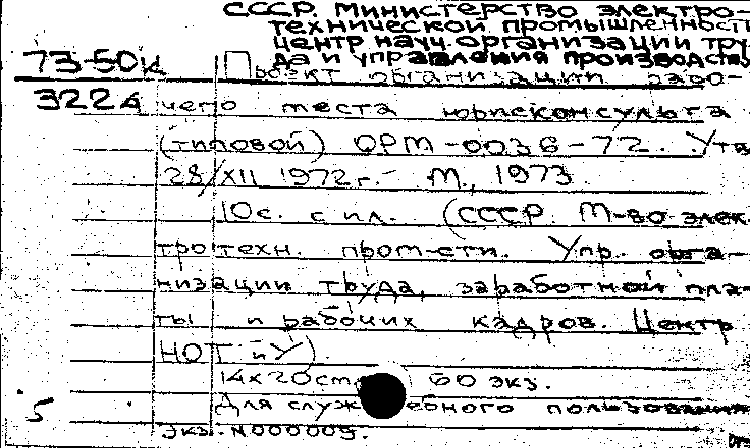 СССР. Министерство электро-
технической промышленност
центр науч. организации тру
да и управления производств
73-50к
Проект организации рабо-
322а
чего места юрисконсульта
(типовой) ОРМ-0036-72. Утв
28/XII 1972г.- М., 1973
10с. с ил. (СССР. М-во элек
тротехн. пром-сти. Упр. орга-
низации труда, заработной пла-
ты и рабочих кадров. Центр
НОТ и У)
14х20см 60 экз.
Для служебного пользования
экз. №000009.
5